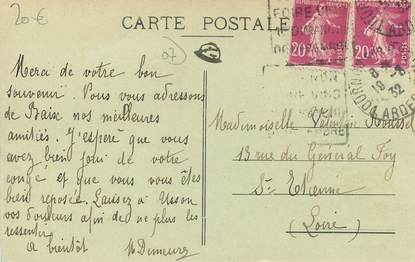 20 €
CARTE POSTALE
07
FOIRE
20 20
19 - 8
32
ARDECHE
Merci de votre bon
souvenir Vous vous adressons
de Baix nos meilleures
amitiés. J'esperé que vous
avez bien joui de votre
congé et que vous vous êtes
bien reposée. Laissez à Usson
vos douleurs afin de ne plus les
ressentir.
à bientôt M Demeure
Mademoiselle Rousset
13 rue du Général Foy
St Etienne
(Loire)